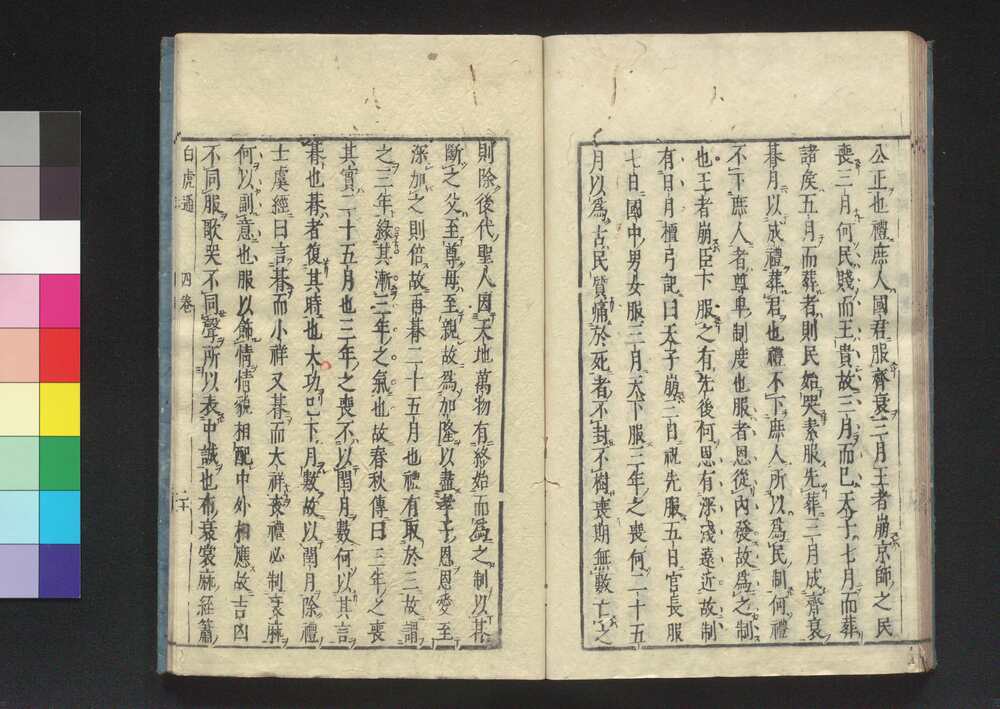 公正也禮庶人國君服齊衰三月王者崩京師之民
喪三月何民賤而王貴故三月而已天子七月而葬
諸矦五月而葬者則民始哭素服先葬三月成齊衰
朞月以成禮葬君也禮不下庶人所以爲民制何禮
不下庶人者尊卑制度也服者恩從内發故爲之制
也王者崩臣下服之有先後何恩有深淺遠近故制
有日月檀弓記曰天子崩三日祝先服五日官長服
七日國中男女服三月天下服三年之喪何二十五
月以爲古民質痛於死者不封不樹喪期無數亡之
則除後代聖人因天地萬物有終始而爲之制以其
斷之父至尊母至親故爲加隆以盡孝子恩恩愛至
深加之則倍故再朞二十五月也禮有取於三故謂
之三年緣其漸三年之氣也故春秋傳曰三年之喪
其實二十五月也三年之喪不以閏月數何以其言
朞也朞者復其時也大功已下月數故以閏月除禮
士虞經曰言朞而小祥又朞而大祥喪禮必制衰麻
何以副意也服以飾情情貌相配中外相應故吉凶
不同服歌哭不同聲所以表中誠也布衰裳麻絰簫
白虎通 四卷 二十